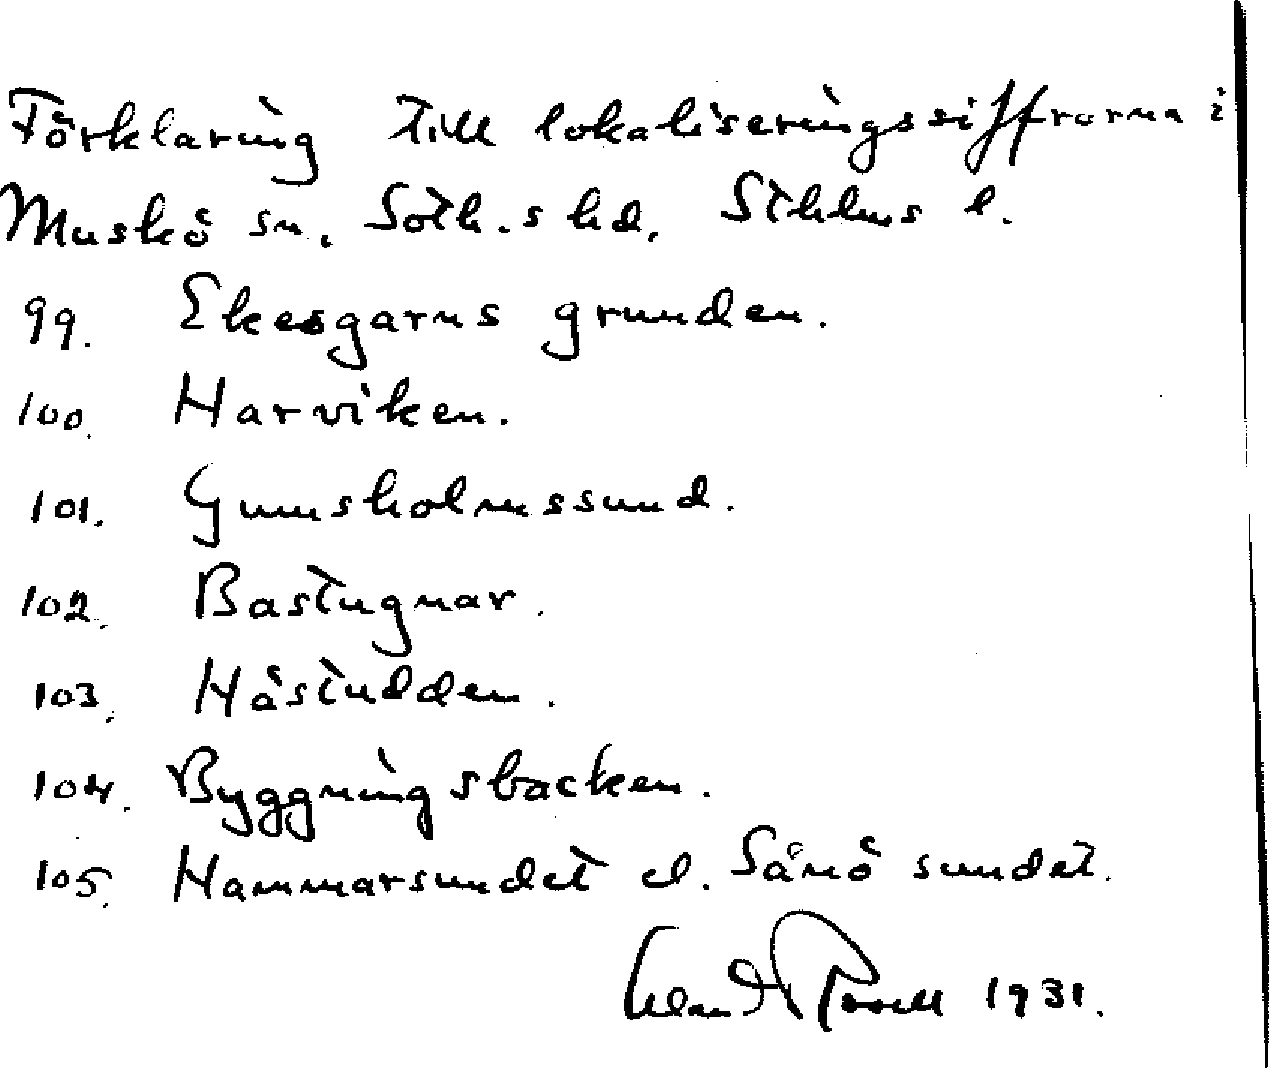 Förklaring till lokaliseringssiffrorna i
Muskö sn. Soth.s hd. Sthlms l.
99. Ekesgarns grunden.
100. Harviken.
101. Gumsholmssund.
102. Bastugnar.
103. Håstudden.
104. Byggningsbacken.
105. Hammarsundet el. Sånö sundet.
1931.